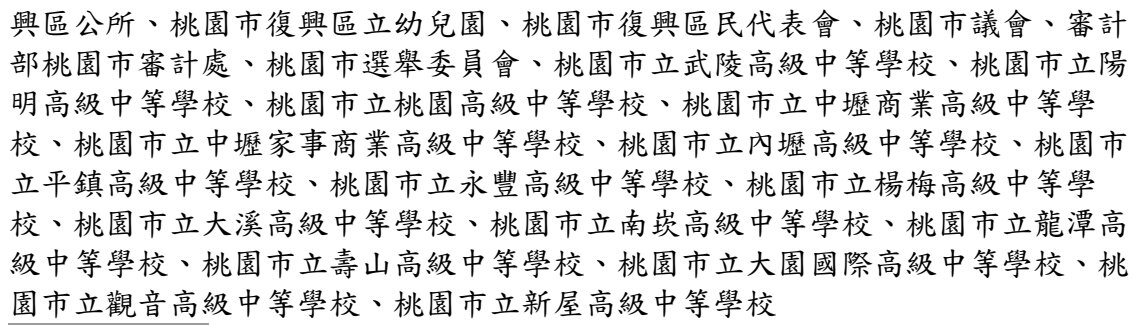 興區公所、桃園市復興區立幼兒園、桃園市復興區民代表會、桃園市議會、審計
部桃園市審計處、桃園市選舉委員會、桃園市立武陵高級中等學校、桃園市立陽
明高級中等學校、桃園市立桃園高級中等學校、桃園市立中壢商業高級中等學
校、桃園市立中壢家事商業高級中等學校、桃園市立內壢高級中等學校、桃園市
立平鎮高級中等學校、桃園市立永豐高級中等學校、桃園市立楊梅高級中等學
校、桃園市立大溪高級中等學校、桃園市立南崁高級中等學校、桃園市立龍潭高
級中等學校、桃園市立壽山高級中等學校、桃園市立大園國際高級中等學校、桃
園市立觀音高級中等學校、桃園市立新屋高級中等學校